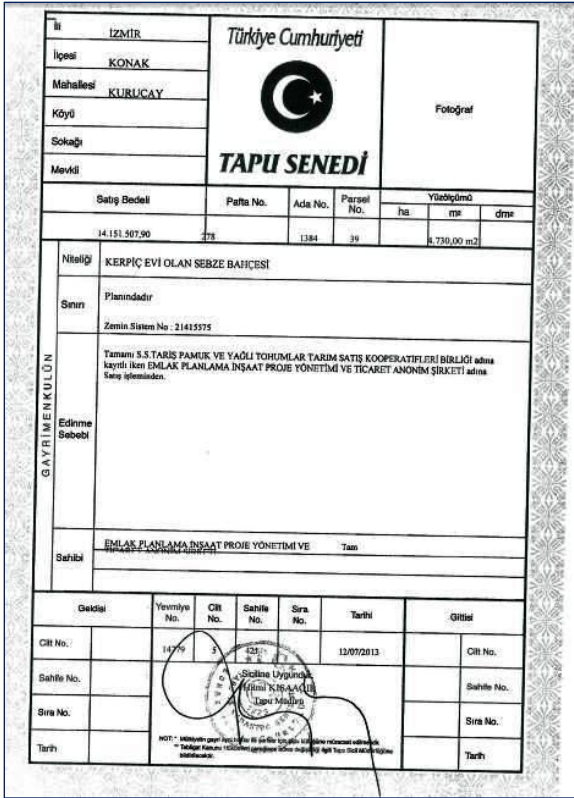 İli İZMİR
İlçesi KONAK
Mahallesi KURUÇAY
Köyü
Sokağı
Mevkii
Türkiye Cumhuriyeti
TAPU SENEDİ
Fotoğraf
Satış Bedeli Pafta No. Ada No. Parsel No. Yüzölçümü
ha m² dm²
14.151.507,90 278 1384 39 4.730,00 m2
GAYRİMENKULÜN
Niteliği KERPİÇ EVİ OLAN SEBZE BAHÇESİ
Sınırı Planındadır
Zemin Sistem No : 21415575
Edinme Sebebi
Tamamı S.S.TARİŞ PAMUK VE YAĞLI TOHUMLAR TARIM SATIŞ KOOPERATİFLERİ BİRLİĞİ adına
kayıtlı iken EMLAK PLANLAMA İNŞAAT PROJE YÖNETİMİ VE TİCARET ANONİM ŞİRKETİ adına
Satış işleminden.
Sahibi
EMLAK PLANLAMA İNŞAAT PROJE YÖNETİMİ VE Tam
TİCARET ANONİM ŞİRKETİ
Geldisi Yevmiye No. Cilt No. Sahife No. Sıra No. Tarihi Gittisi
Cilt No. 14779 5 421 12/07/2013 Cilt No.
Sahife No. Siciline Uygundur. Sahife No.
Hilmi
Tapu Müdürü
Sıra No. Sıra No.
Tarih Tarih
NOT: *
**